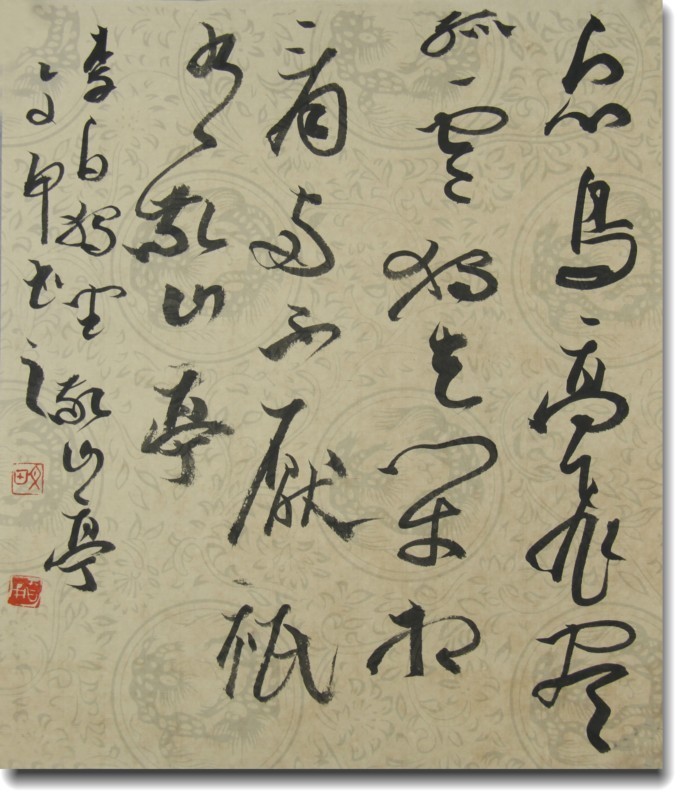 众鸟高飞尽
孤云独去闲相
看两不厭祇
有敬山亭
李白独坐敬山亭
文甲书